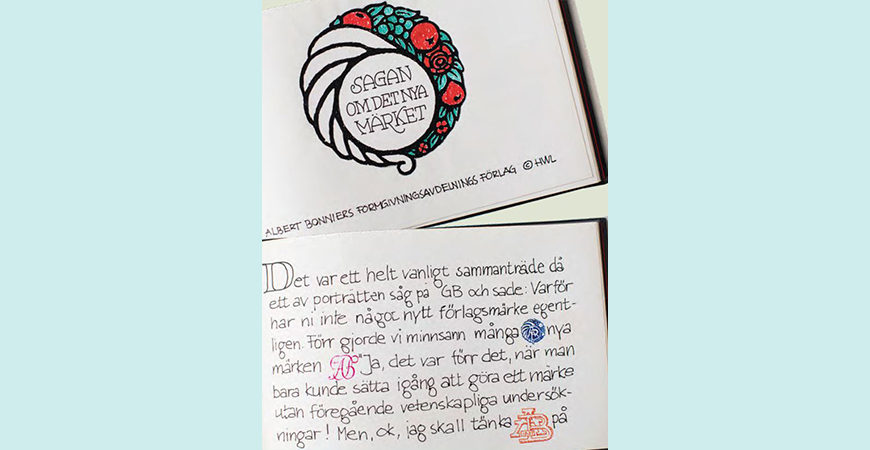 SAGAN
OM DET NYA
MÄRKET
ALBERT BONNIERS FORMGIVNINGSAVDELNINGS FÖRLAG © HWL
Det var ett helt vanligt sammanträde då
ett av porträtten såg på GB och sade: Varför
har ni inte något nytt förlagsmärke egent-
ligen. Förr gjorde vi minnsann många AB nya
märken AB "Ja, det var förr det, när man
bara kunde sätta igång att göra ett märke
utan föregående vetenskapliga undersök-
ningar! Men, ok, jag skall tänka AB på